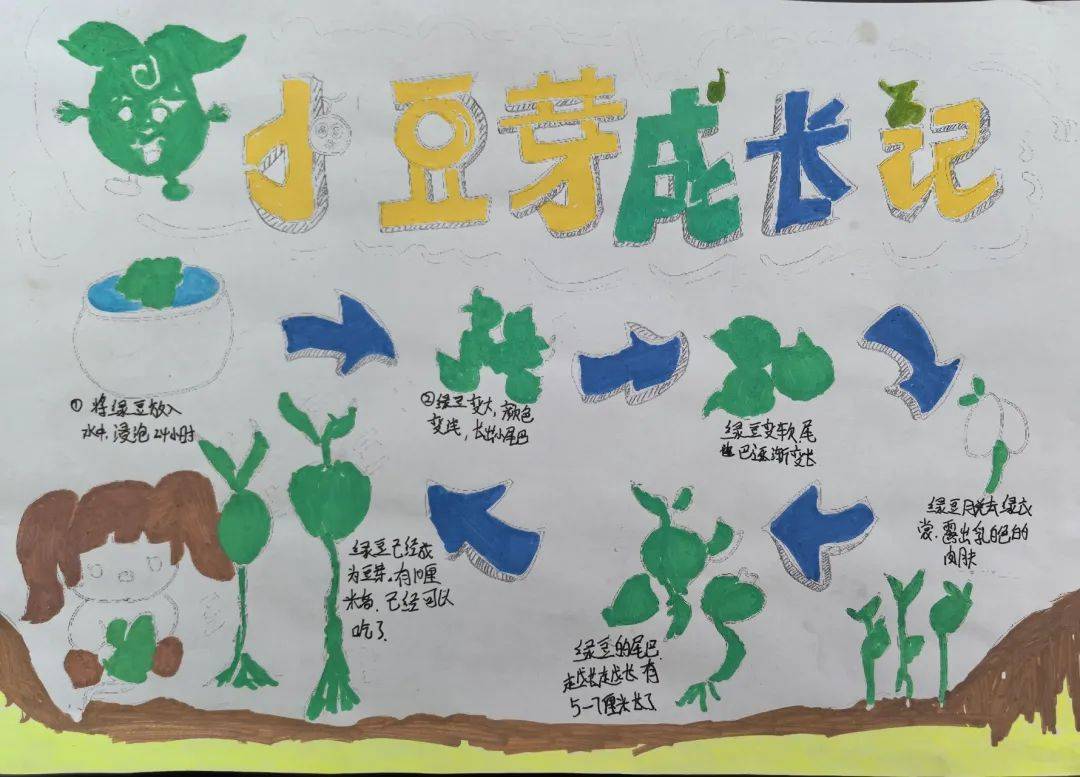 小豆芽成长记
①将绿豆放入
水中,浸泡24小时
②绿豆变大,颜色
变浅,长出小尾巴
绿豆变软尾
巴逐渐变长
绿豆脱去绿衣
裳.露出乳白色的
肉肤
绿豆的尾巴
越长越长 有
5-7厘米长了
绿豆已经成
为豆芽。有10厘
米高.已经可以
吃了.